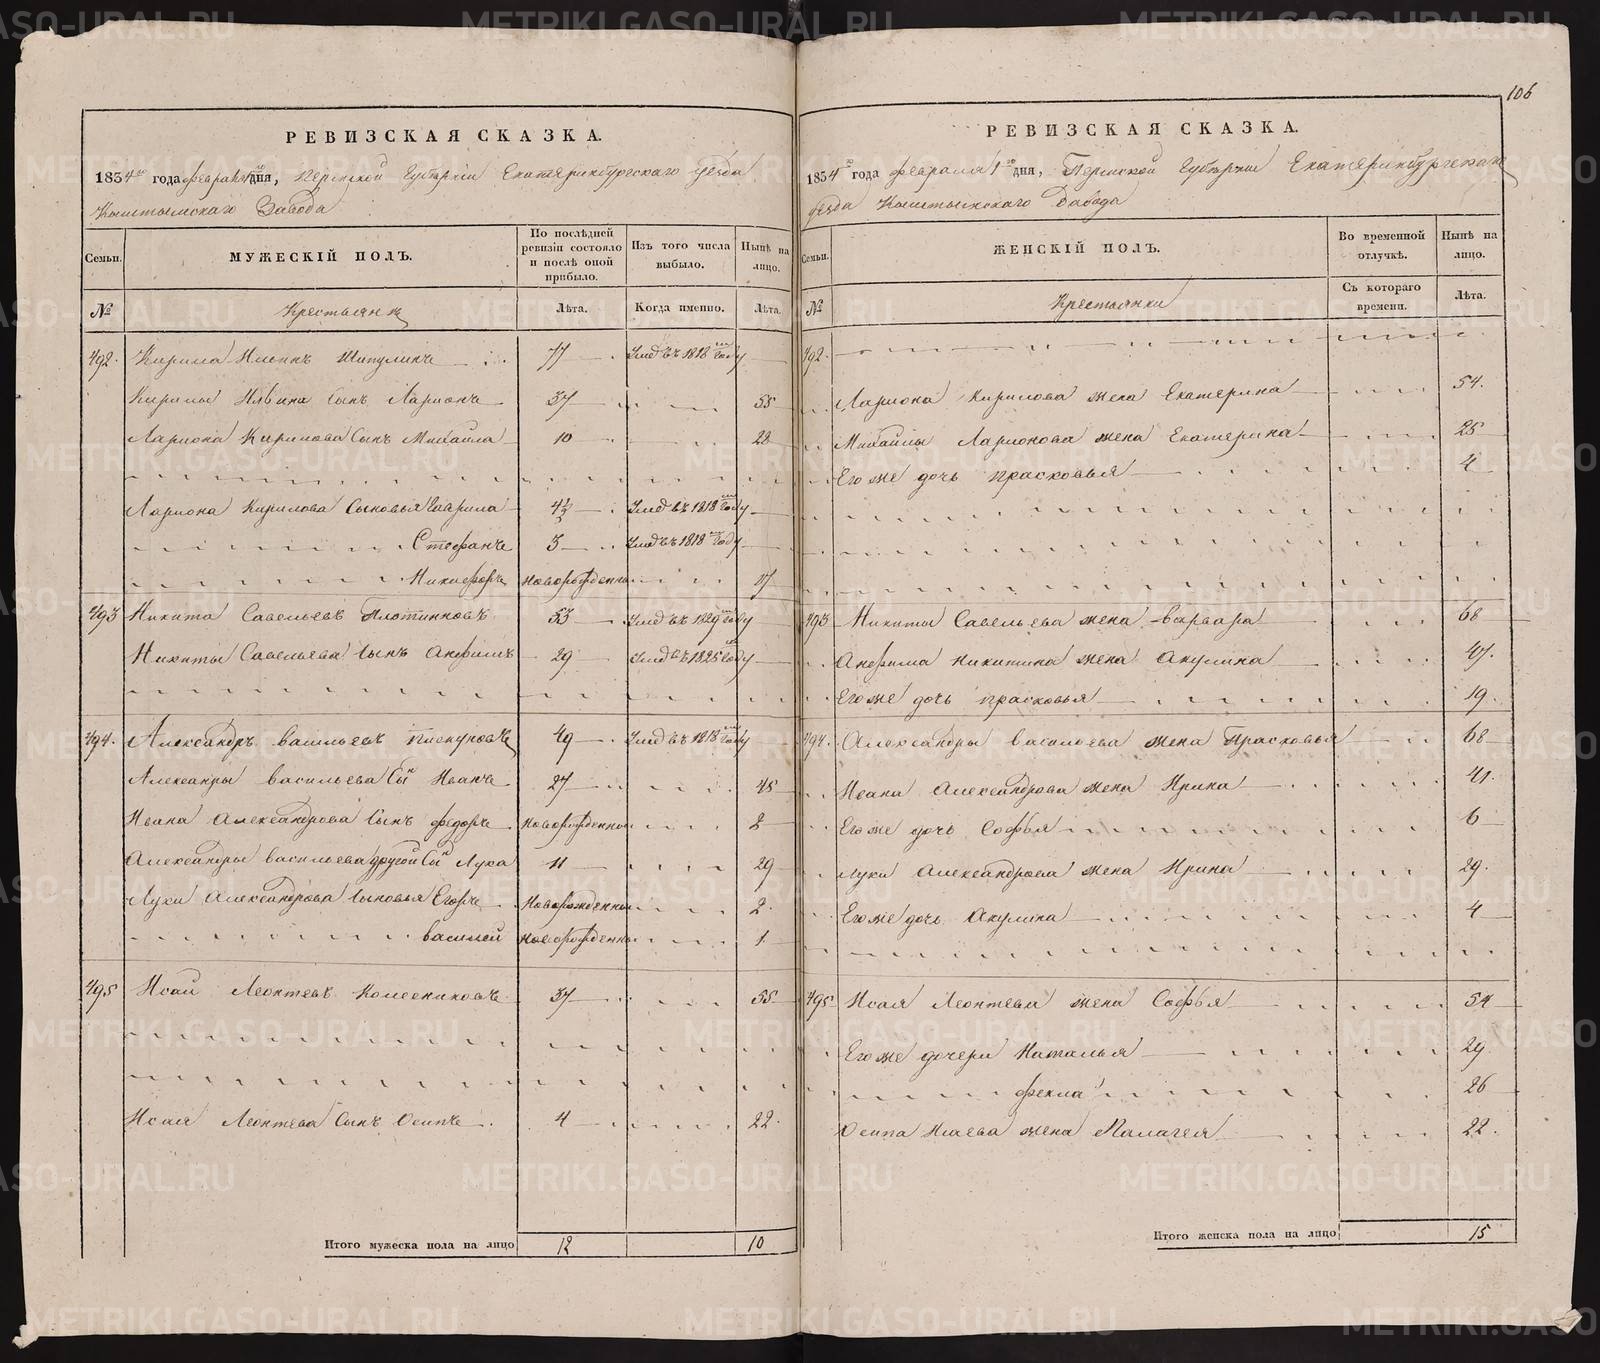 106
РЕВИЗСКАЯ СКАЗКА.
1834го года февраля 1го дня, Пермской Губернии Екатеринбургского уезда
Кыштымскаго Завода
Семьи. МУЖЕСКІЙ ПОЛЪ. По послѣдней ревизіи состояло и послѣ оной прибыло. Изъ того числа выбыло. Нынѣ на лицо.
№ Крестьянъ Лѣта. Когда именно. Лѣта.
492. Кирила Ильинъ Шипулинъ 77 Умеръ въ 1818м году
Кирилы Ильина Сынъ Ларионъ 37 55
Лариона Кирилова Сынъ Михайла 10 28
Лариона Кирилова Сыновья Гаврила 4½ Умеръ въ 1818м году
Стефанъ 3 Умеръ въ 1818м году
Никифоръ новорожденны 17
493 Никита Савельевъ Плотниковъ 53 Умеръ въ 1829м году
Никиты Савельева Сынъ Анфимъ 29 Умеръ въ 1825м году
494. Александръ Васильевъ 49 Умеръ въ 1818м году
Александры Васильева Сынъ Иванъ 27 45
Ивана Александрова Сынъ Федоръ Новорожденной 2
Александры Васильева другой Сынъ Лука 11 29
Луки Александрова Сыновья Егоръ Новорожденны 2
Василей Новорожденны 1
495 Исай Леонтьевъ Колесниковъ 37 55
Исая Леонтьева Сынъ Осипъ 4 22.
Итого мужеска пола на лицо 12 10
РЕВИЗСКАЯ СКАЗКА.
1834го года февраля 1го дня, Пермской Губернии Екатеринбургскаго
уезда Кыштымскаго Завода
Семьи. ЖЕНСКІЙ ПОЛЪ. Во временной отлучкѣ. Нынѣ на лицо.
№ Крестьянки Съ котораго времени. Лѣта.
492.
Лариона Кирилова жена Екатерина 54.
Михайлы Ларионова жена Екатерина 25
Его же дочь Прасковья 4
493 Никиты Савельева жена Варвара 68
Анфима Никитина жена Акулина 47.
Его же дочь Прасковья 19.
494. Александры Васильева жена Прасковья 68
Ивана Александрова жена Ирина 41.
Его же дочь Софья 6
Луки Александрова жена Ирина 29.
Его же дочь Акулина 4
495 Исая Леонтьева жена Софья 54
Его же дочери Наталья 29
Фекла 26
Осипа Исаева жена Палагея 22.
Итого женска пола на лицо 15
METRIKI.GASO-URAL.RU